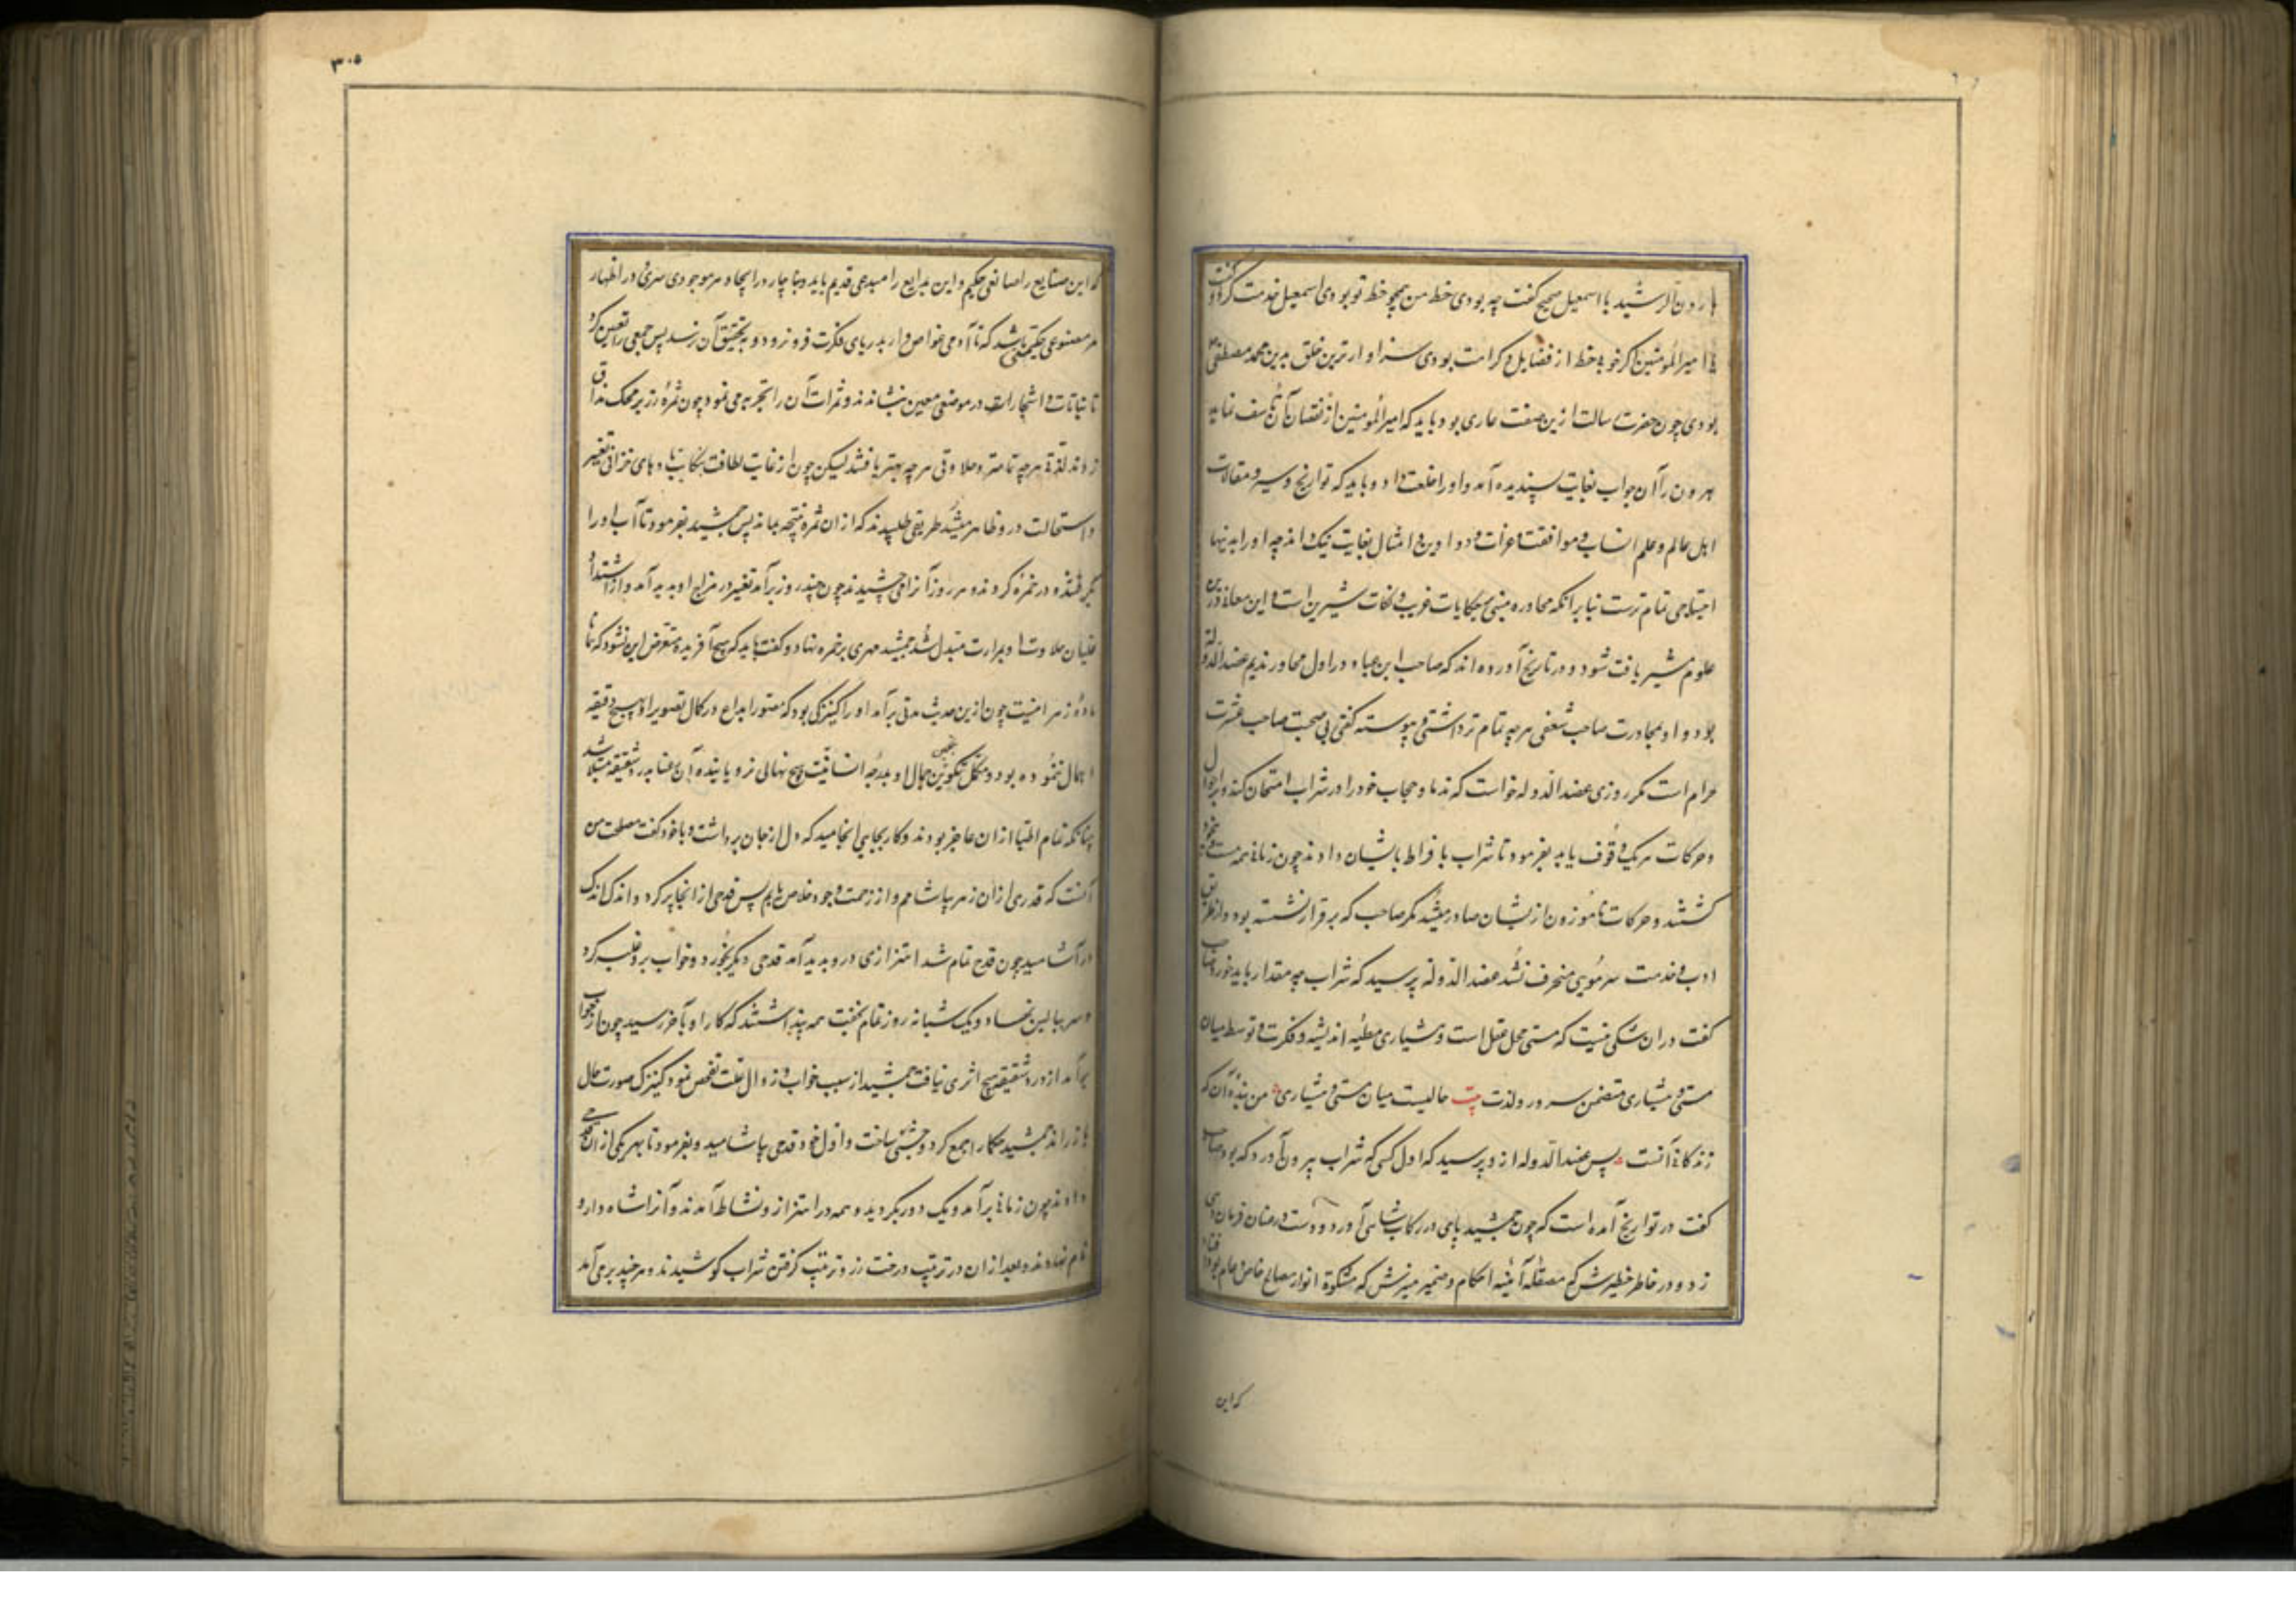 هارون الرشید با اسمعیل صبیح گفت چه بودی خط من همچو خط تو بودی اسمعیل خدمت کرد و گفت
یا امیر المؤمنین اگر خوبی خط از فضایل و کرامت بودی سزاوارترین خلق بدین محمد مصطفی
بودی چون حضرت رسالت ازین صفت عاری بود باید که امیر المؤمنین از نقصان آن تأسف نماید
هرون را آن جواب بغایت پسندیده آمد و او را خلعت داد و باید که تواریخ و سیر و مقالات
اهل عالم و علم انساب و موافقت و دواوین و امثال بغایت نیک داند چه او را بدینها
احتیاجی تمام ترست بنابر آنکه محاوره مبنی بحکایات غریب و نکات شیرین است و این معانی درین
علوم بیشتر یافت شود و در تاریخ آورده اند که صاحب ابن عباد در اول محاور ندیم عضد الدوله
بود و او بمجاورت صاحب شعفی هرچه تمام تر داشتی و پیوسته گفتی بی صحبت صاحب عشرت
حرام است مگر روزی عضد الدوله خواست که ندما و حجاب خود را در شراب امتحان کند و بر احوال
و حرکات هریک وقوف یابد بفرمود تا شراب بافراط بایشان دادند چون زمانی همه مست و بیخود
گشتند و حرکات ناموزون ازیشان صادر میشد مگر صاحب که برقرار نشسته بود و از طریق
ادب و خدمت سر مویی منحرف نشد عضد الدوله پرسید که شراب چه مقدار باید خورد صاحب
گفت در ان شکی نیست که مستی محل عقل است و هشیاری مطیه اندیشه و فکرت و توسط میان
مستی و هشیاری متضمن سرور و لذت بیت حالیست میان مستی و هشیاری من بنده آن که
زندگانی آنست پس عضد الدوله از و پرسید که اول کسی که شراب بیرون آورد که بود صاحب
گفت در تواریخ آمده است که چون جمشید پای در رکاب شاهی آورد و دست در عنان فرمان دهی
زد و در خاطر خطیرش که مصقله آینه احکام و ضمیر منیرش که مشکوة انوار مصالح خاص و عام بود افتاد
که این
۳۰۵
که این صنایع را صانعی حکیم و این بدایع را مبدعی قدیم باید و بناچار در ایجاد هر موجودی سری و در اظهار
هر مصنوعی حکمتی باشد که تا آدمی غواص وار بدریای فکرت فرو نرود و بتحقیق آن نرسد پس جمعی را تعیین کرد
تا نباتات و اشجارات در موضعی معین بنشاندند و ثمرات آن را تجربه می نمود چون ثمرۀ رز بر محک مذاق
زدند لذتی هرچه تمامتر و حلاوتی هرچه بهتر یافتند لیکن چون از غایت لطافت بنکبات بادهای خزانی تغییر
و استحالت درو ظاهر میشد طریقی طلبیدند که از ان ثمره نتیجه بماند پس جمشید بفرمود تا آب او را
بگرفتند و در خمره کردند و هر روز آنرا می چشیدند چون چند روز برآمد تغییر در مزاج او پدید آمد و از اشتداد
غلیان حلاوت او بمرارت متبدل شد جمشید مهری بر خمره نهاد و گفت باید که هیچ آفریده متعرض این نشود که همانا
ماده زهر اینست چون ازین حدیث مدتی برآمد او را کنیزکی بود که مصور ابداع در کمال تصویر او هیچ دقیقه
اهمال ننموده بود و بدرد شقیقه مبتلا شد
چنانکه تمام اطبا از ان عاجز بودند و کار بجایی انجامید که دل از جان برداشت و با خود گفت مصلحت من
آنست که قدری از ان زهر بیاشامم و از زحمت وجود خلاص یابم پس قدحی از انجا پر کرد و اندک اندک
در آشامید چون قدح تمام شد اهتزازی درو پدید آمد قدحی دیگر بخورد و خواب برو غلبه کرد
و سر ببالین نهاد و یک شبانه روز تمام بخفت همه پنداشتند که کار او بآخر رسید چون از خواب
برآمد از درد شقیقه هیچ اثری نیافت جمشید از سبب خواب و زوال علت تفحص نمود کنیزک صورت حال
باز راند جمشید حکما را جمع کرد و جشنی ساخت و اول خود قدحی بیاشامید و بفرمود تا بهر یکی از ان قدحی
دادند چون زمانی برآمد و یک دور بگردید و همه در اهتزاز و نشاط آمدند و آنرا شاه دارو
نام نهادند و بعد از ان در ترتیب درخت رز و ترتیب گرفتن شراب کوشیدند و هرچند برمی آمد